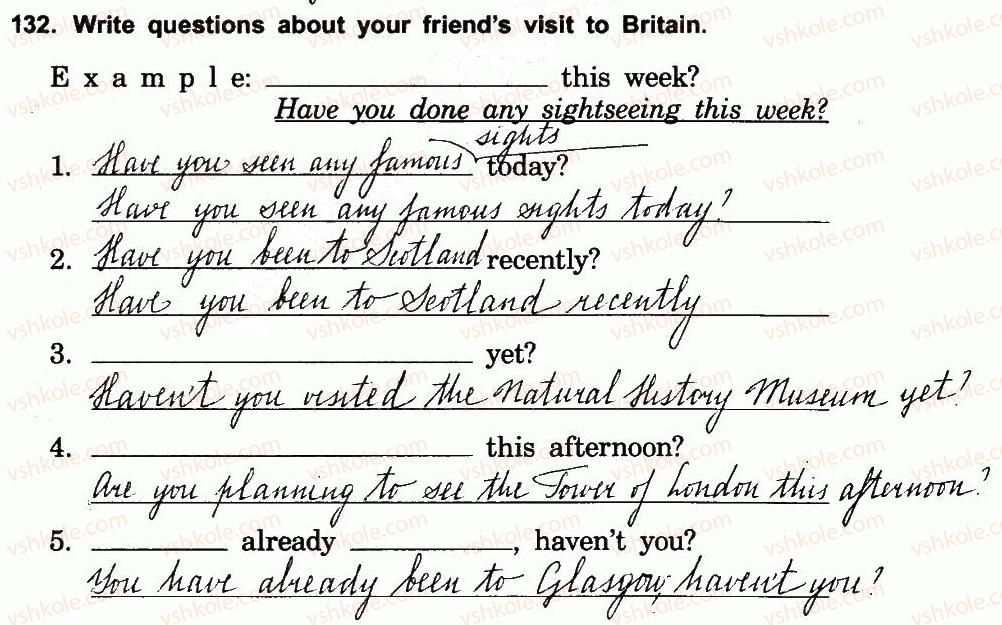 132. Write questions about your friend's visit to Britain.
E x a m p l e: ____________ this week?
Have you done any sightseeing this week?
sights
1. Have you seen any famous today?
Have you seen any famous sights today?
2. Have you been to Scotland recently?
Have you been to Scotland recently
3. ____________ yet?
Haven't you visited the Natural History Museum yet?
4. ____________ this afternoon?
Are you planning to see the Tower of London this afternoon?
5. ________ already ________, haven't you?
You have already been to Glasgow, haven't you?